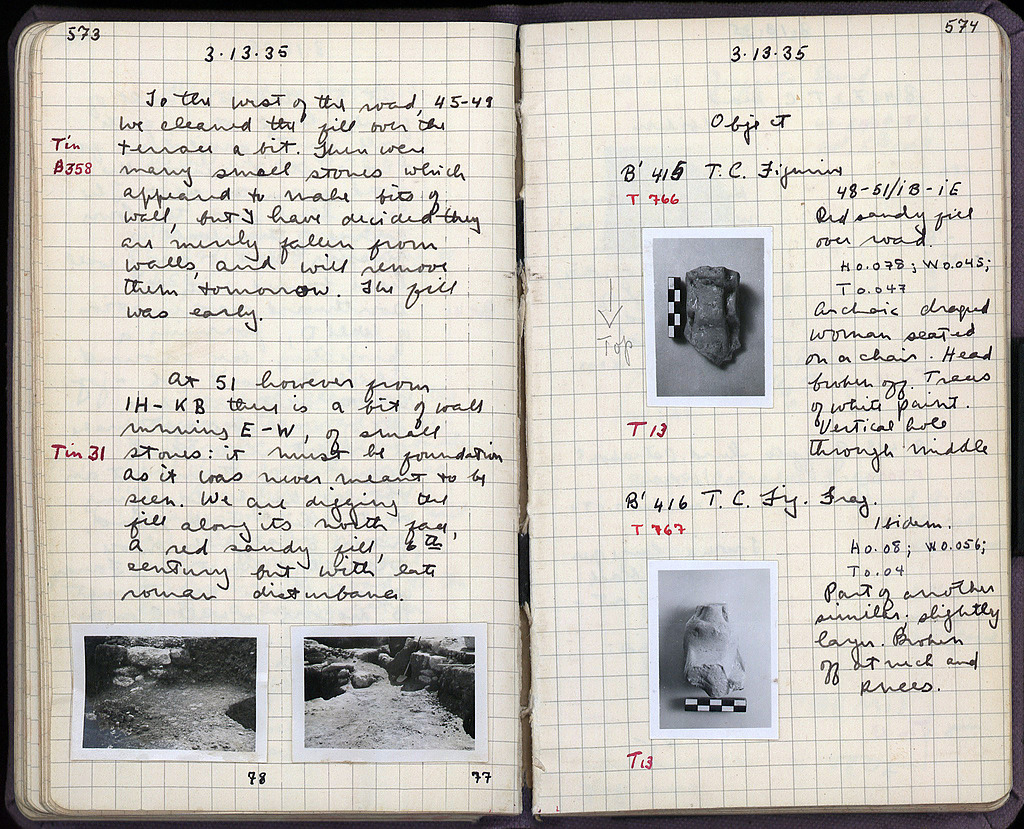 573
3·13·35
To the west of the road, 45-49
we cleaned the fill over the
Tin
terrace a bit. There were
B358
many small stones which
appeared to make bits of
wall, but I have decided they
are merely fallen from
walls, and will remove
them tomorrow. The fill
was early.
At 51 however from
IH-KB there is a bit of wall
running E-W, of small
Tin 31
stones: it must be foundation
as it was never meant to be
seen. We are digging the
fill along its north face,
a red sandy fill, 6th
century but with late
roman disturbance.
78
77
574
3·13·35
Object
B' 415 T.C. Figurine
T 766
48-51/iB-iE
Red sandy fill
over road.
H 0.078; W 0.045;
T 0.047
Archaic draped
woman seated
on a chair. Head
broken off. Traces
of white paint.
Vertical hole
through middle
Top
T 13
B' 416 T.C. Fig. Frag.
T 767
Ibidem.
H 0.08; W 0.056;
T 0.04
Part of another
similar; slightly
larger. Broken
off at neck and
knees.
T13